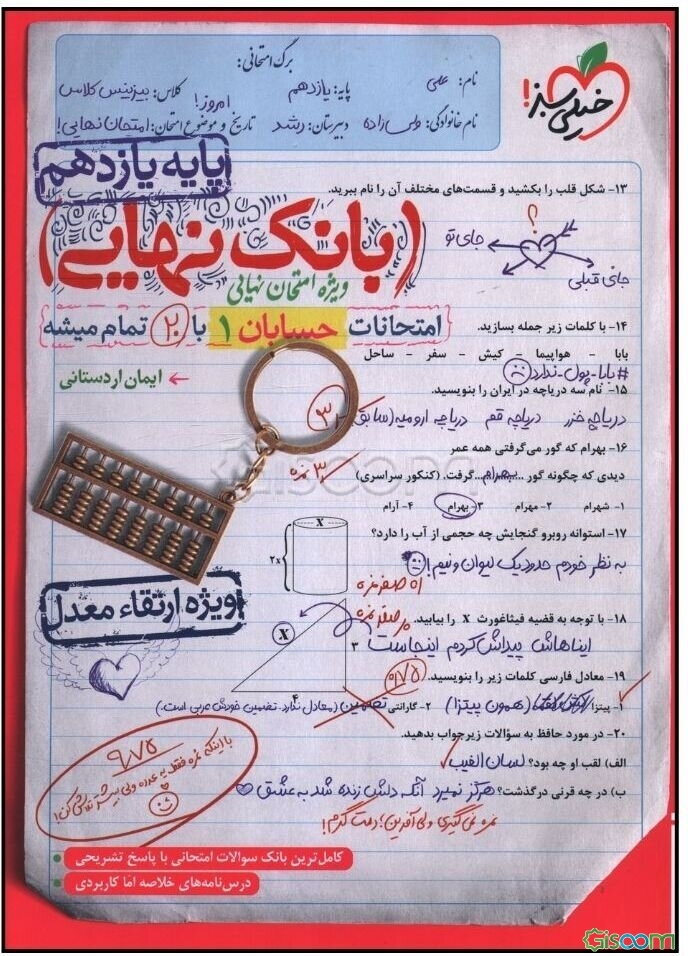 خیلی سبز!
برگ امتحانی:
نام: علی
پایه: یازدهم
کلاس: بیزینس کلاس
امروز!
نام خانوادگی: ولی‌زاده دبیرستان: رشد تاریخ و موضوع امتحان: امتحان نهایی!
پایه یازدهم
(بانک نهایی)
ویژه امتحان نهایی
امتحانات حسابان ۱ با ۲۰ تمام میشه
← ایمان اردستانی
۱۳- شکل قلب را بکشید و قسمت‌های مختلف آن را نام ببرید.
؟
جای تو
جای قبلی
۱۴- با کلمات زیر جمله بسازید.
بابا - هواپیما - کیش - سفر - ساحل
#بابا_پول_ندارد
۱۵- نام سه دریاچه در ایران را بنویسید.
دریاچه خزر دریاچه قم دریاچه ارومیه (سابق)
۳
۱۶- بهرام که گور می‌گرفتی همه عمر
دیدی که چگونه گور ...بهرام... گرفت. (کنکور سراسری)
۳ نمره
۱- شهرام ۲- مهرام ۳- بهرام ۴- آرام
۱۷- استوانه روبرو گنجایش چه حجمی از آب را دارد؟
x
۲x
به نظر خودم حدود یک لیوان و نیم!
صفر نمره
ویژه ارتقاء معدل
۱۸- با توجه به قضیه فیثاغورث x را بیابید.
صفر نمره
x
۳
۴
ایناهاش پیداش کردم اینجاست
۱۹- معادل فارسی کلمات زیر را بنویسید.
۰/۷۵
۱- پیتزا (همون پیتزا) ۲- گارانتی تضمین (معادل ندارد. تضمین خودش عربی است.)
۲۰- در مورد حافظ به سؤالات زیر جواب بدهید.
الف) لقب او چه بود؟ لسان الغیب
ب) در چه قرنی درگذشت؟ هرگز نمیرد آنکه دلش زنده شد به عشق
نمره نمی‌گیری ولی آفرین؛ دمت گرم!
۹/۷۵
با اینکه نمره فقط یه عدده ولی بیشتر تلاش کن!
کامل‌ترین بانک سوالات امتحانی با پاسخ تشریحی
درس‌نامه‌های خلاصه اما کاربردی
GISOOM
Gisoom